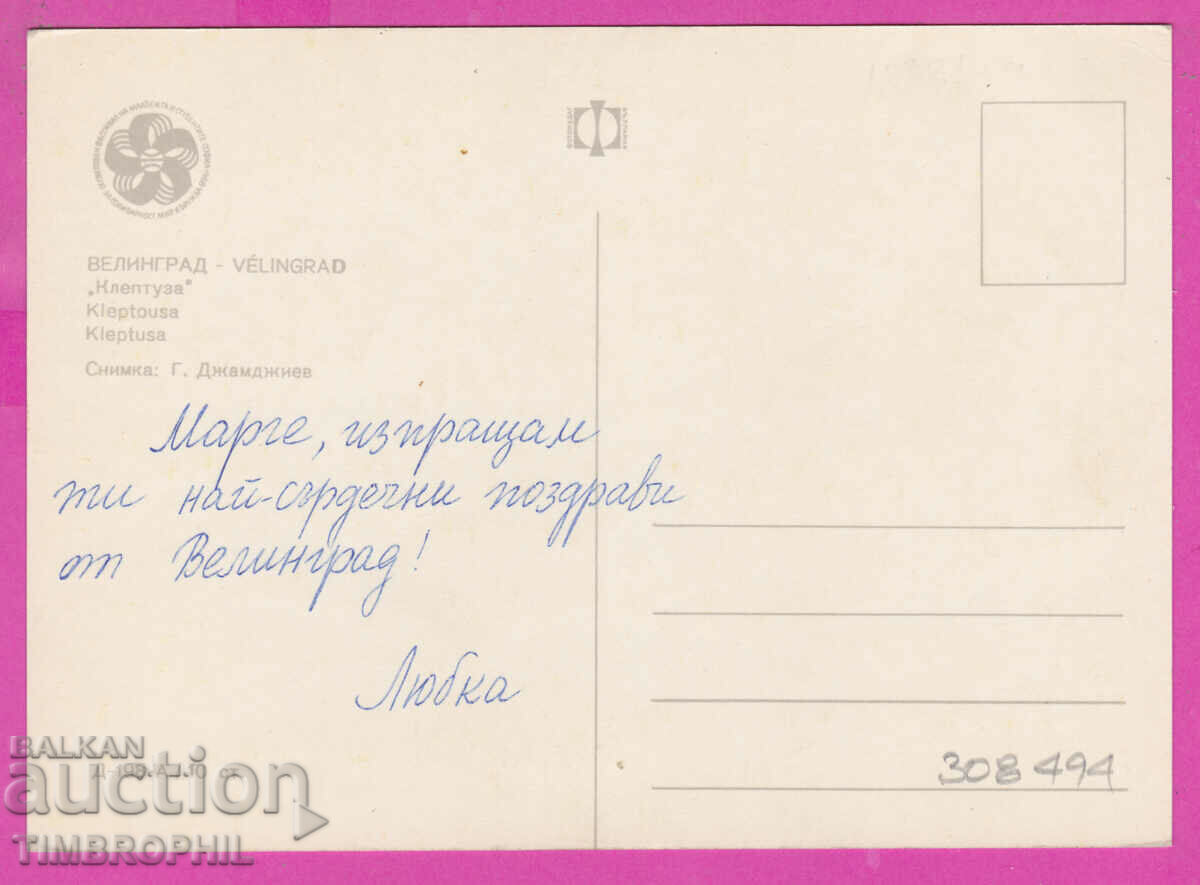 ВЕЛИНГРАД - VÉLINGRAD
„Клептуза"
Kleptousa
Kleptusa
Снимка: Г. Джамджиев
Марге, изпращам
ти най-сърдечни поздрави
от Велинград!
Любка
308494
BALKAN
auction
TIMBROPHIL